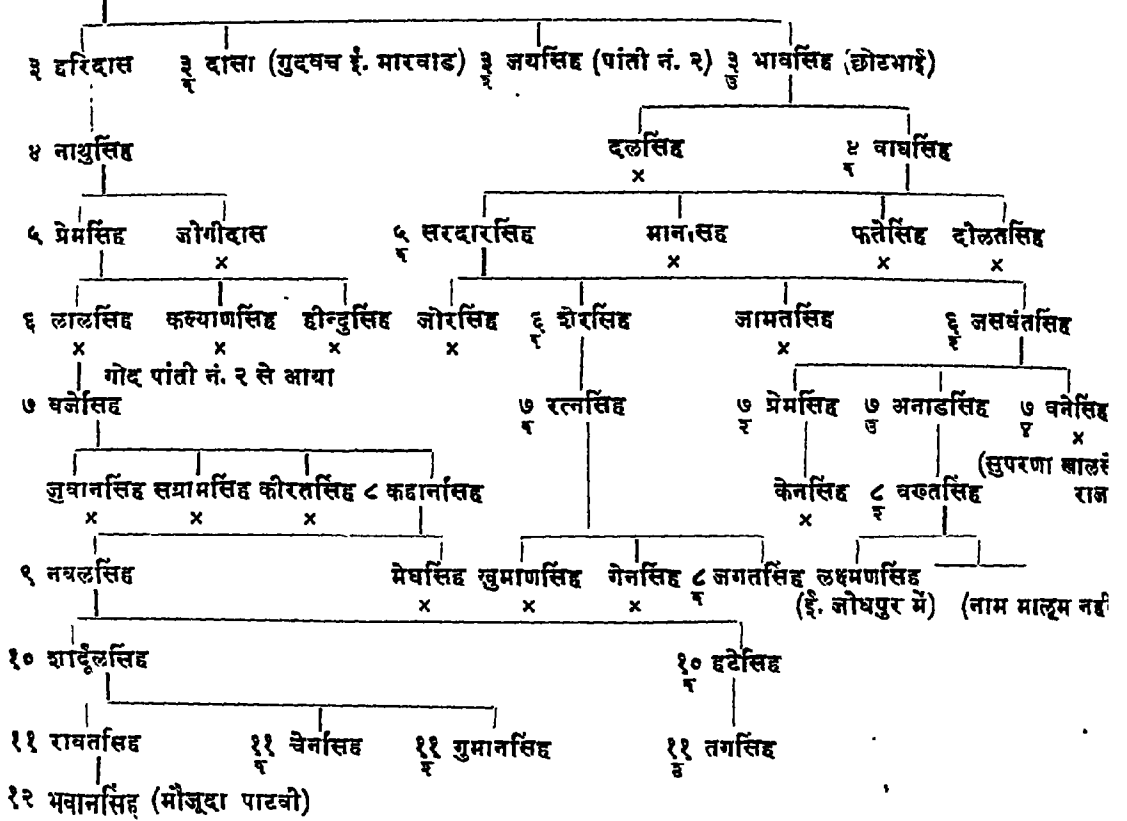 ३ हरिदास ३/१ दासा (गुदवच ई. मारवाड) ३/२ जयसिंह (पांती नं. २) ३/३ भावसिंह (छोटभाई)
४ नाथुसिंह दलसिंह ४/१ वाघसिंह
×
५ प्रेमसिंह जोगीदास ५/१ सरदारसिंह मानसिंह फतेसिंह दौलतसिंह
× × × ×
६ लालसिंह कल्याणसिंह हीन्दुसिंह जोरसिंह ६/१ शेरसिंह जामतसिंह ६/२ जसवंतसिंह
× × × × ×
गोद पांती नं. २ से आया
७ वजेसिंह ७/१ रत्नसिंह ७/२ प्रेमसिंह ७/३ अनाडसिंह ७/४ वनेसिंह
×
(सुपरणा खालसे
जुवानसिंह सग्रामसिंह कीरतसिंह ८ कहानसिंह केनसिंह ८/२ वख्तसिंह राज
× × × ×
९ नवलसिंह मेघसिंह खुमाणसिंह गेनसिंह ८/१ जगतसिंह लक्ष्मणसिंह
× × × (ई. जोधपुर में) (नाम मालूम नहीं
१० शार्दूलसिंह १०/१ हटेसिंह
११ रावतसिंह ११/१ चेनसिंह ११/२ गुमानसिंह ११/३ तगसिंह
१२ भवानसिंह (मौजूदा पाटवी)